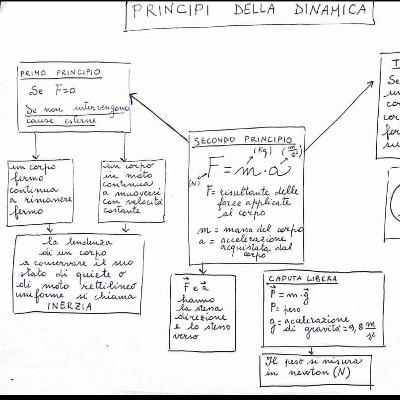 PRINCIPI DELLA DINAMICA
PRIMO PRINCIPIO
Se F=0
Se non intervengono
cause esterne
un corpo
fermo
continua
a rimanere
fermo
un corpo
in moto
continua
a muoversi
con velocità
costante
la tendenza
di un corpo
a conservare il suo
stato di quiete o
di moto rettilineo
uniforme si chiama
INERZIA
SECONDO PRINCIPIO
(Kg) (m/s²)
F = m·a
(N)
F = risultante delle
forze applicate
al corpo
m = massa del corpo
a = accelerazione
acquistata dal
corpo
F e a
hanno
la stessa
direzione
e lo stesso
verso
CADUTA LIBERA
P = m·g
P = peso
g = accelerazione
di gravità = 9,8 m/s²
Il peso si misura
in newton (N)